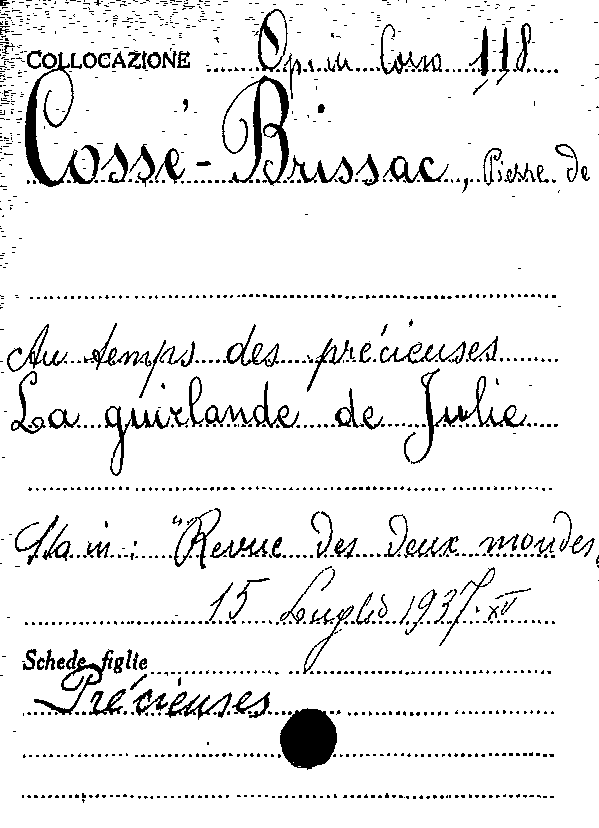 COLLOCAZIONE Op. in Corso 118
Cossé-Brissac, Pierre de
Au temps des précieuses
La guirlande de Julie
Sta in: "Revue des deux mondes,
15 Luglio 1937-XV
Schede figlie
Précieuses